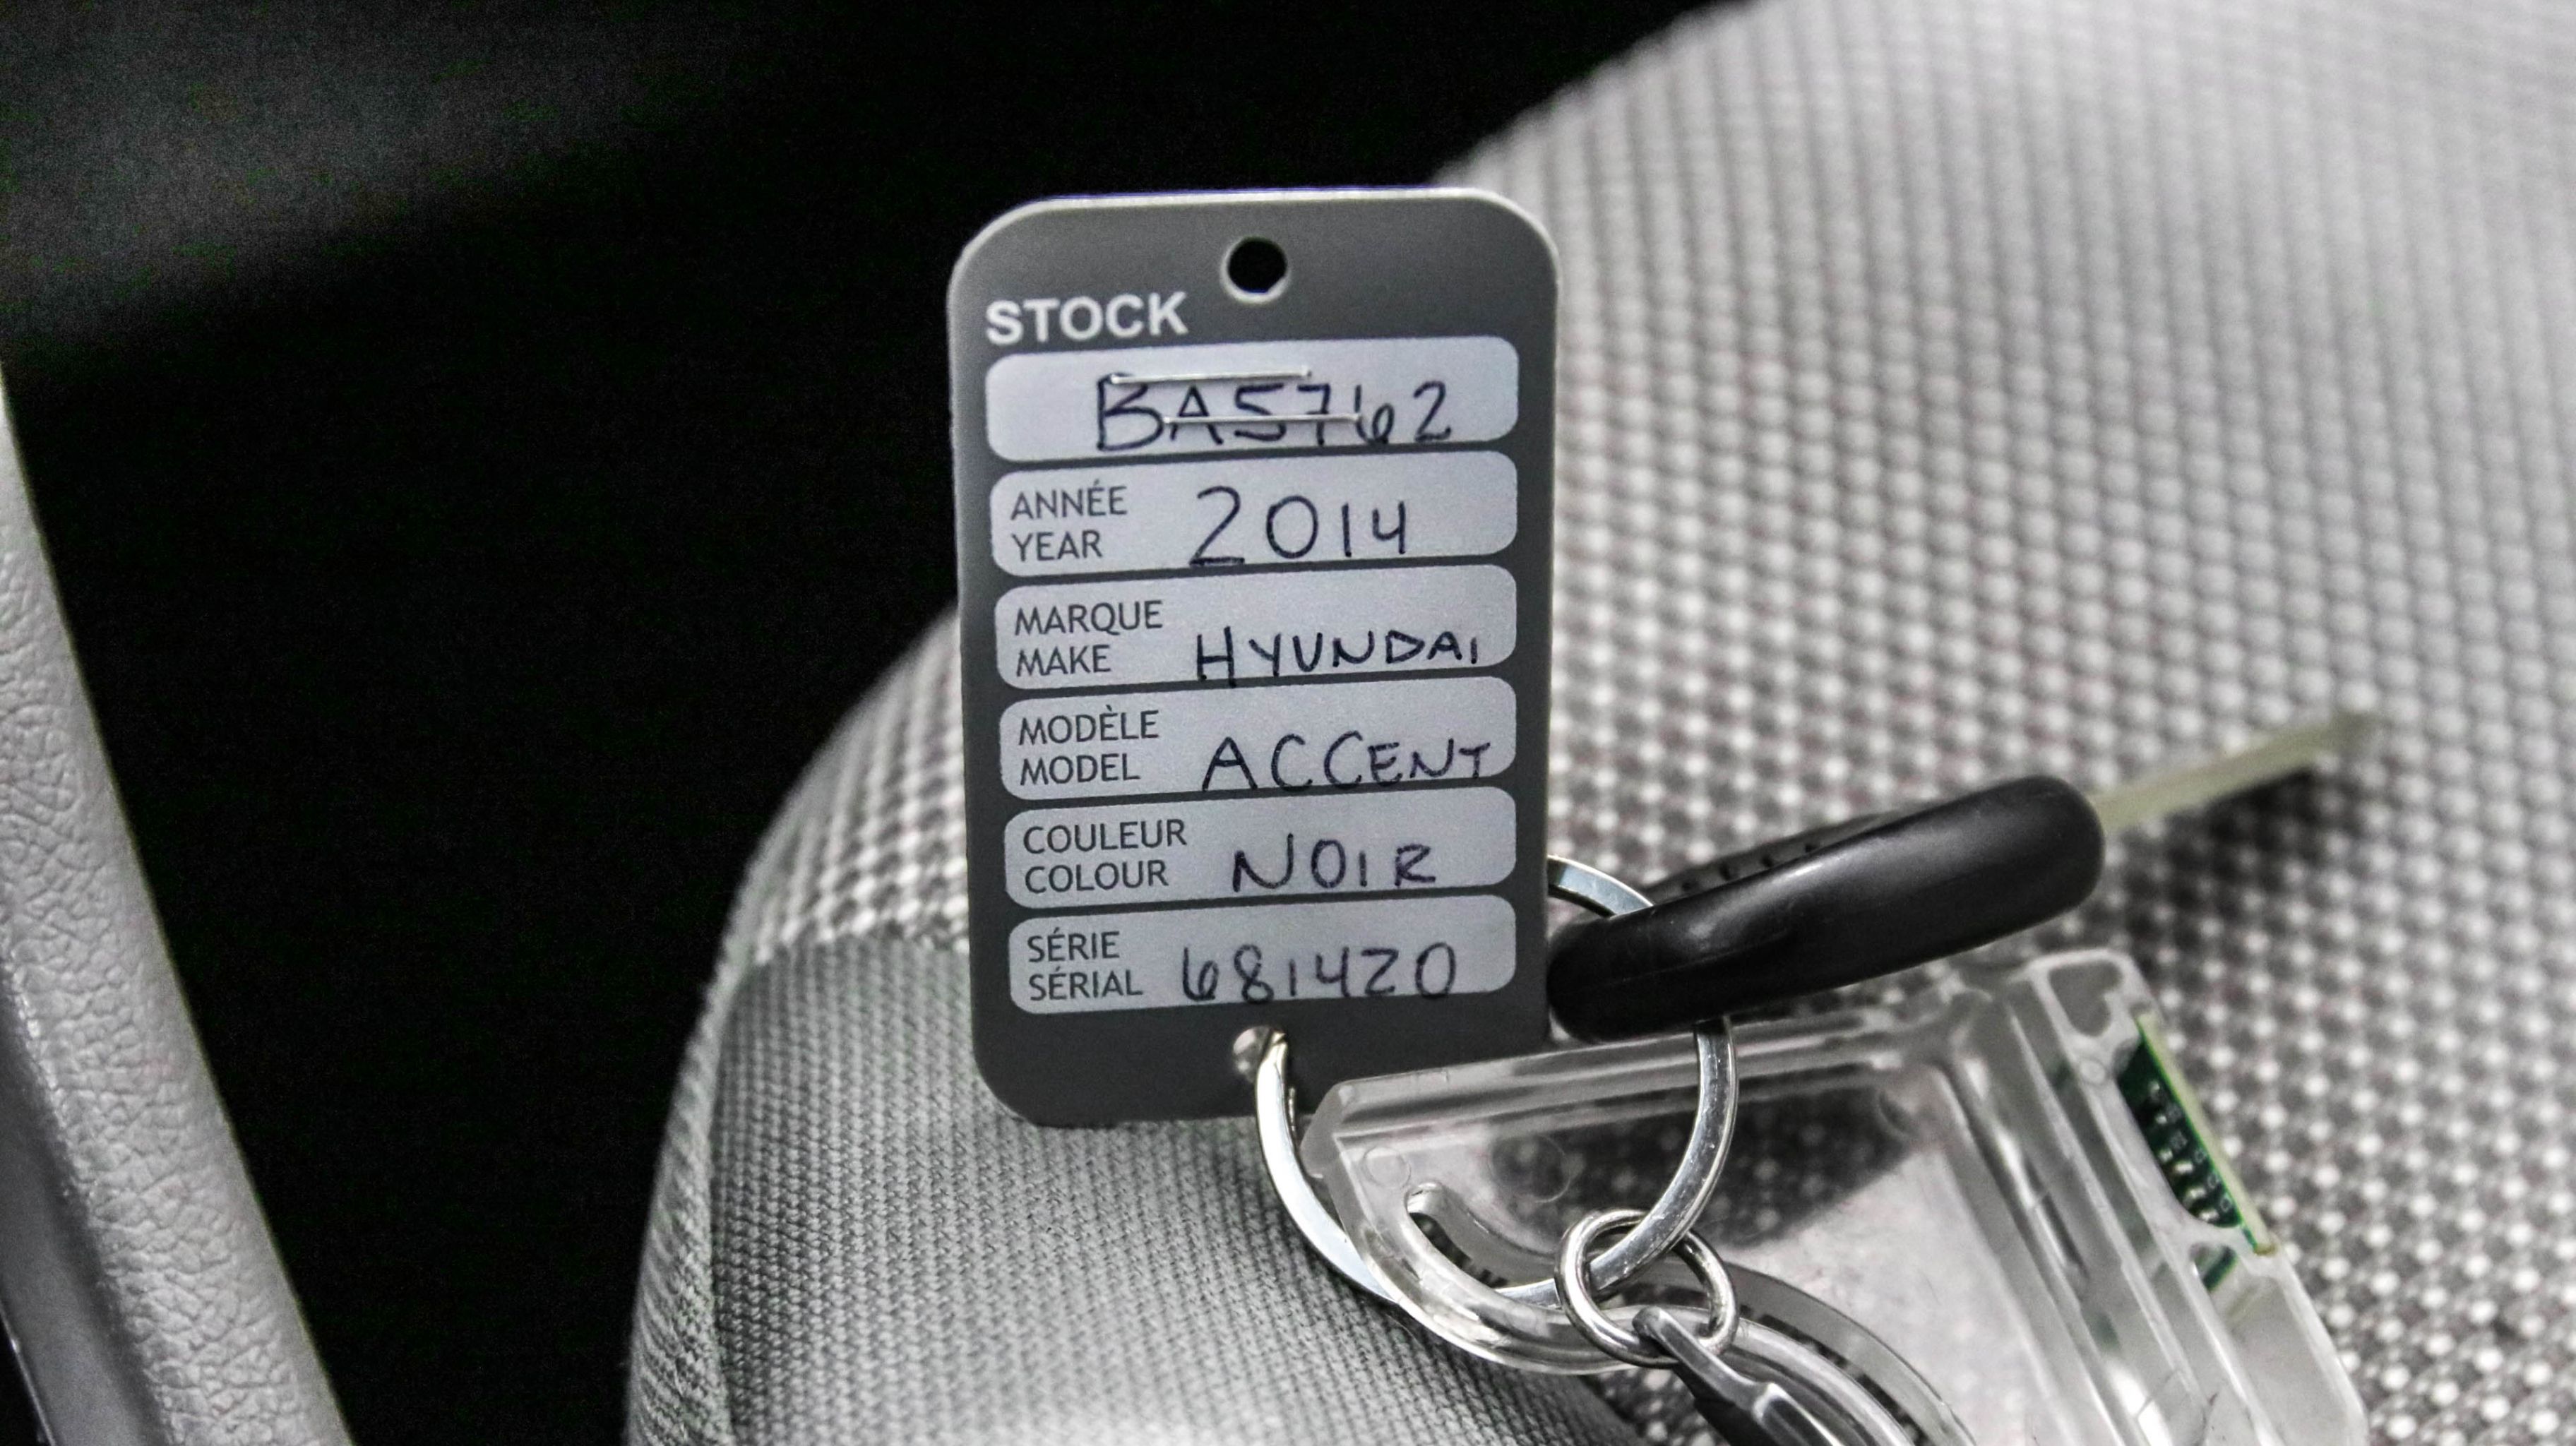 STOCK
BA5762
ANNÉE
YEAR 2014
MARQUE
MAKE HYUNDAI
MODÈLE
MODEL ACCENT
COULEUR
COLOUR NOIR
SÉRIE
SÉRIAL 681420